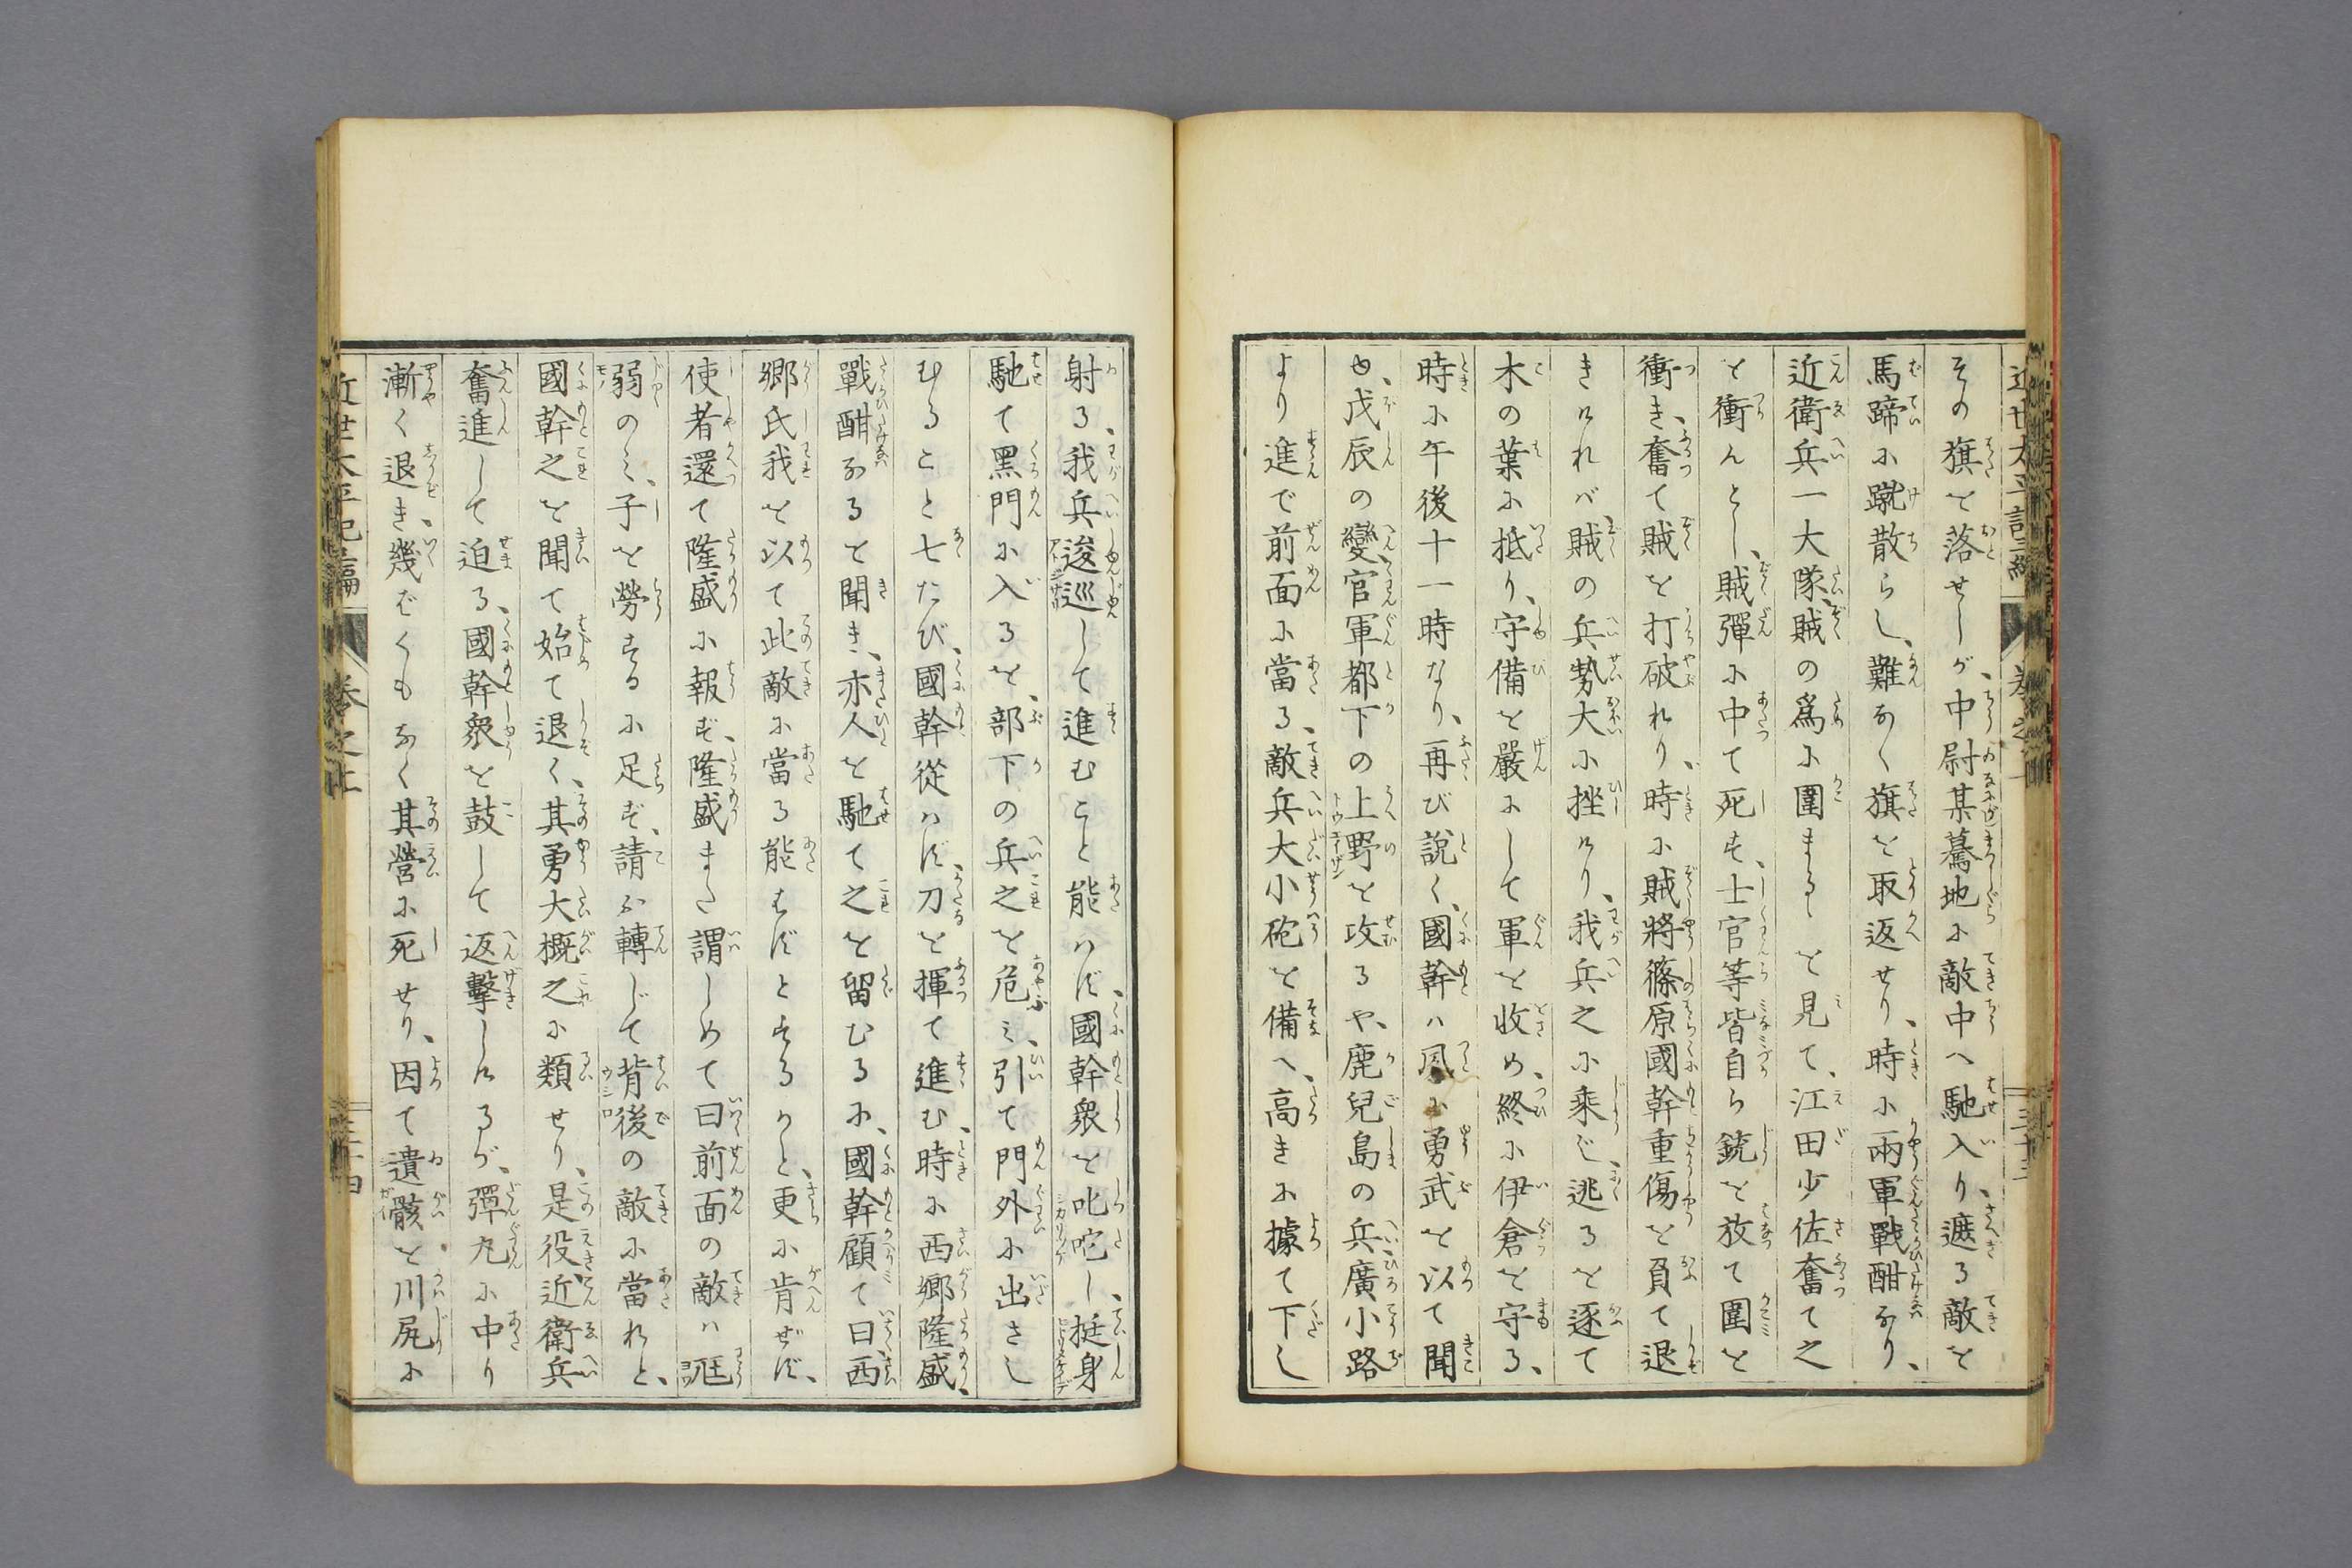 その旗を落せしが、中尉某驀地に敵中へ馳入り、遮る敵を
馬蹄に蹴散らし、難なく旗を取返せり、時に兩軍戰酣なり、
近衛兵一大隊、賊の爲に圍まるゝを見て、江田少佐奮て之
を衝んとし、賊彈に中て死す、士官等皆自ら銃を放て圍を
衝き、奮て賊を打破れり、時に賊將篠原國幹重傷を負て退
きければ、賊の兵勢大に挫けり、我兵之に乘じ、逃るを逐て
木の葉に抵り、守備を嚴にして軍を收め、終に伊倉を守る、
時に午後十一時なり、再び説く、國幹ハ夙に勇武を以て聞
ゆ、戊辰の變官軍都下の上野を攻るや、鹿兒島の兵、廣小路
より進で前面に當る、敵兵大小砲を備へ、高きに據て下し
射る、我兵逡巡して進むこと能ハず、國幹衆を叱咤し、挺身
馳て黑門に入るを、部下の兵之を危ミ、引て門外に出さし
むること七たび、國幹從ハず、刀を揮て進む、時に西郷隆盛、
戰酣なると聞き、亦人を馳て之を留むるに、國幹顧て曰、西
郷氏我を以て此敵に當る能はずとするかと、更に肯ぜず、
使者還て隆盛に報ず、隆盛また謂しめて曰前面の敵ハ尫
弱のミ、子を勞するに足ず、請ふ轉じて背後の敵に當れと、
國幹之を聞て始て退く、其勇大概之に類せり、是役、近衛兵
奮進して迫る、國幹衆を鼓して返擊しけるが、彈丸に中り
漸く退き、幾ばくもなく其營に死せり、因て遺骸を川尻に
近世太平記二編
卷之上
三十四